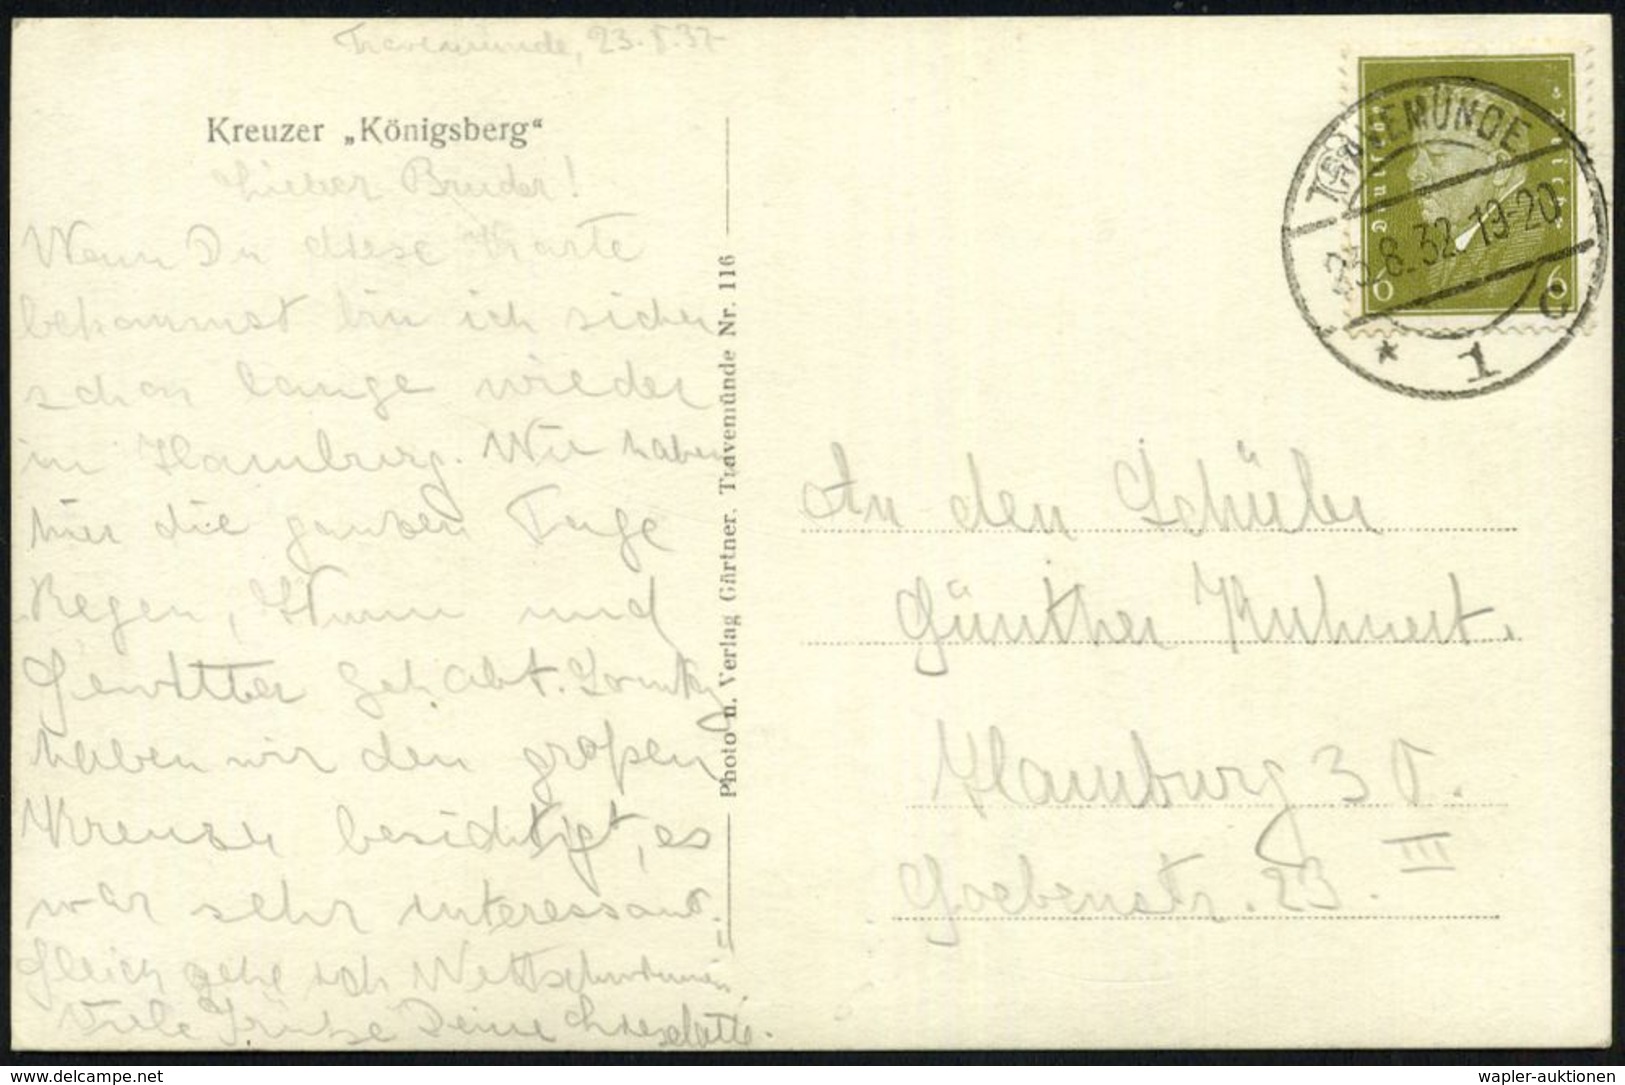 Travemünde, 23.8.32
Kreuzer „Königsberg“
Lieber Bruder!
Wenn Du diese Karte
bekommst bin ich sicher
schon lange wieder
in Hamburg. Wir haben
hier die ganzen Tage
Regen, Sturm und
Gewitter gehabt.
haben wir den großen
Kreuzer besichtigt, es
war sehr interessant.
Gleich gehe ich Wettschwimmen.
Viele Grüße Deine Lieselotte.
Photo u. Verlag Gärtner, Travemünde Nr. 116
TRAVEMÜNDE
.8.32.19-20
* 1 c
Deutsches Reich
6 6
An den Schüler
Günther Kuhnert.
Hamburg 30.
III
Goebenstr. 23.
delcampe.net
wapler-auktionen